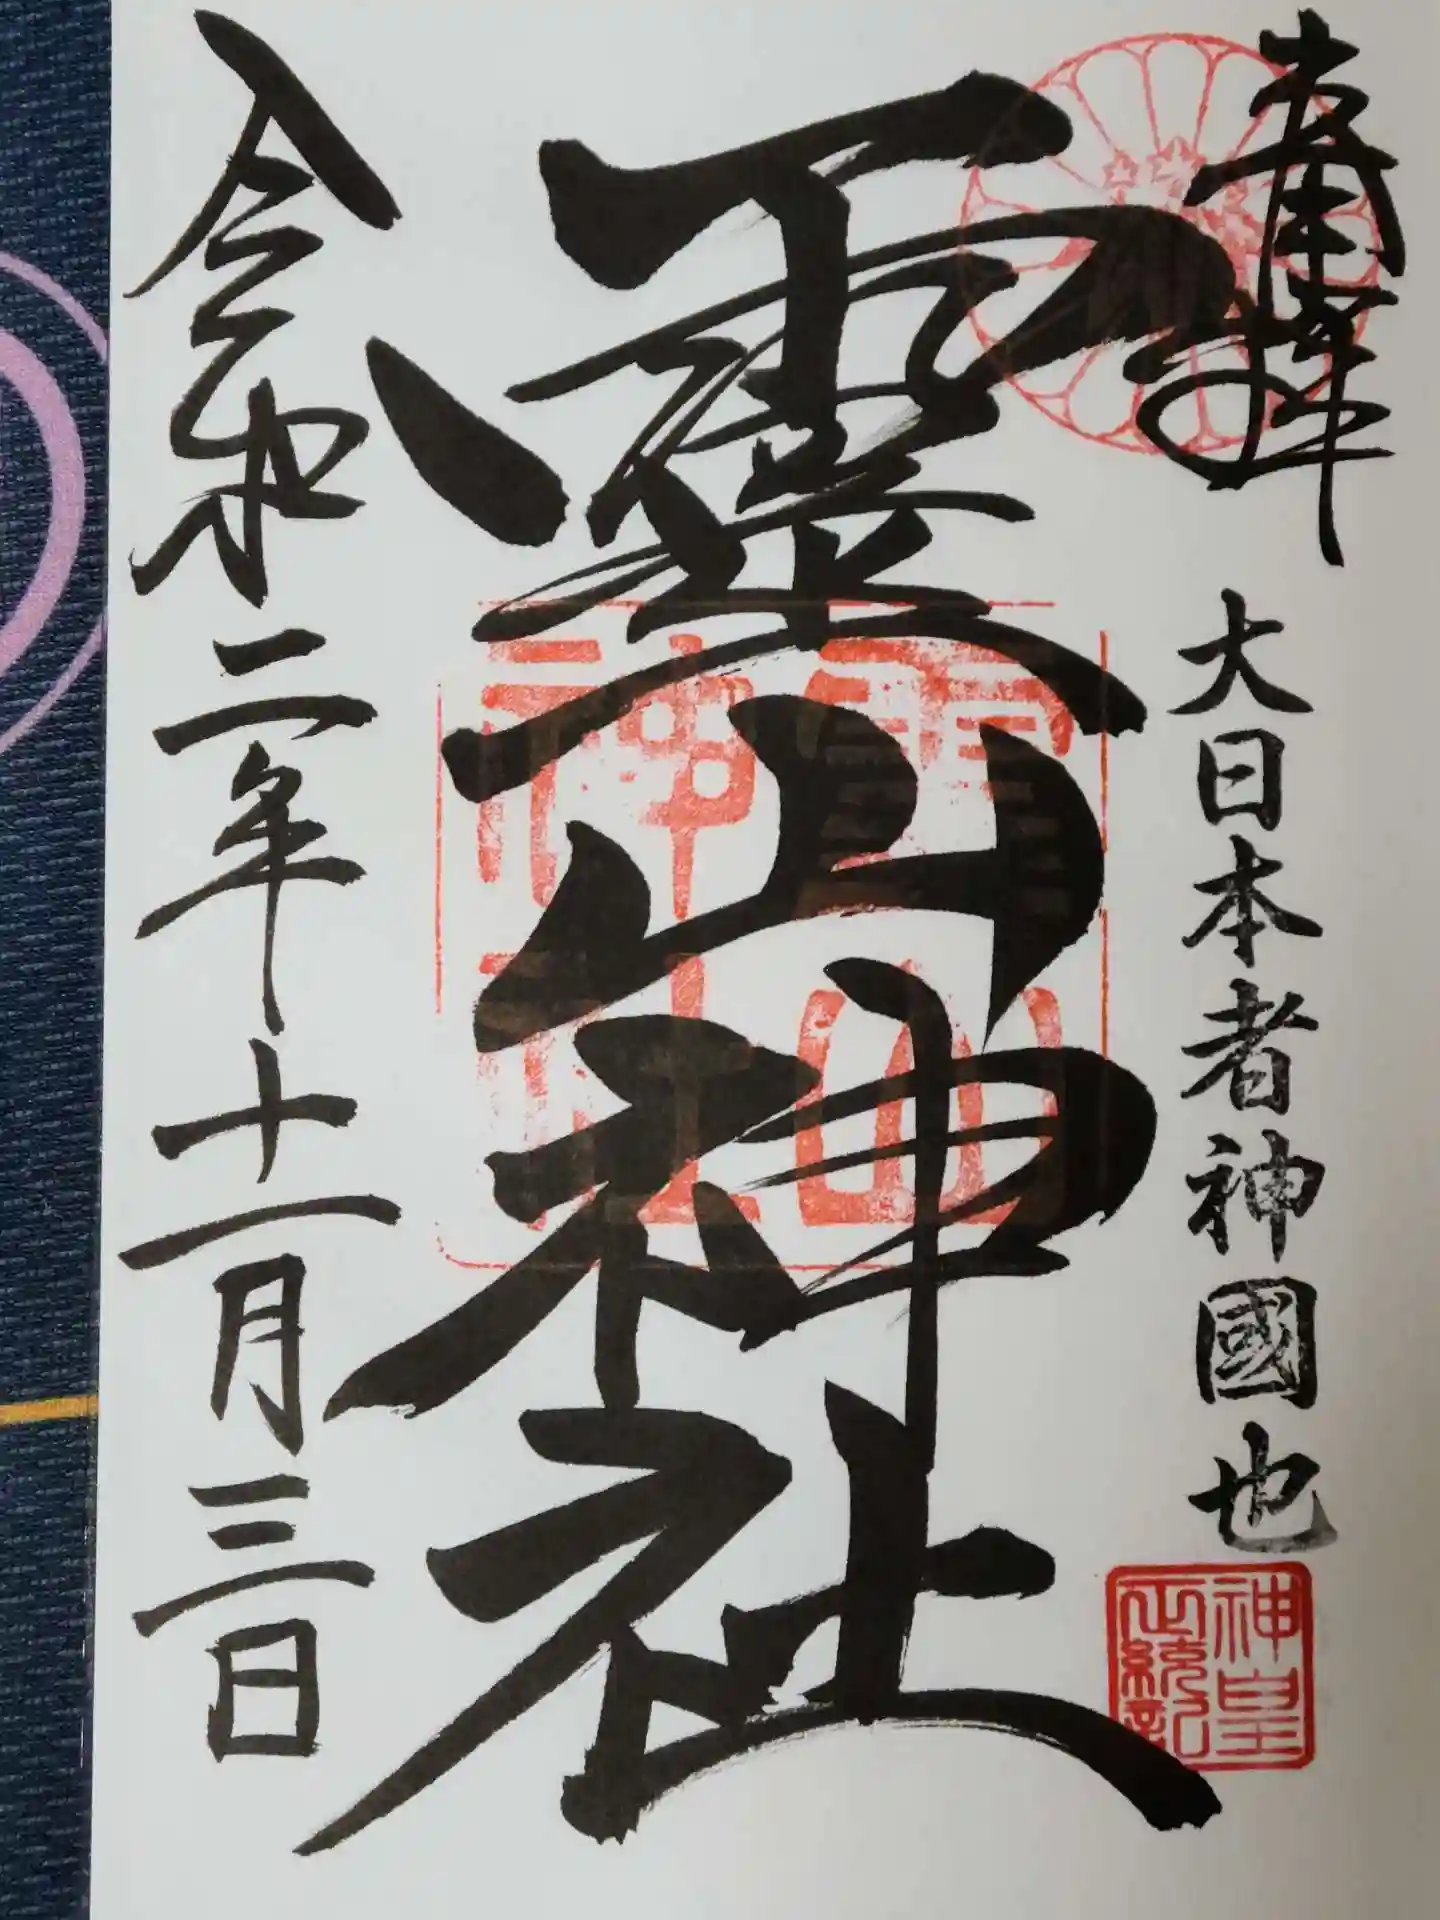 奉拝
大日本者神國也
神皇
正統記
靈山神社
靈山
神社
令和二年十一月三日